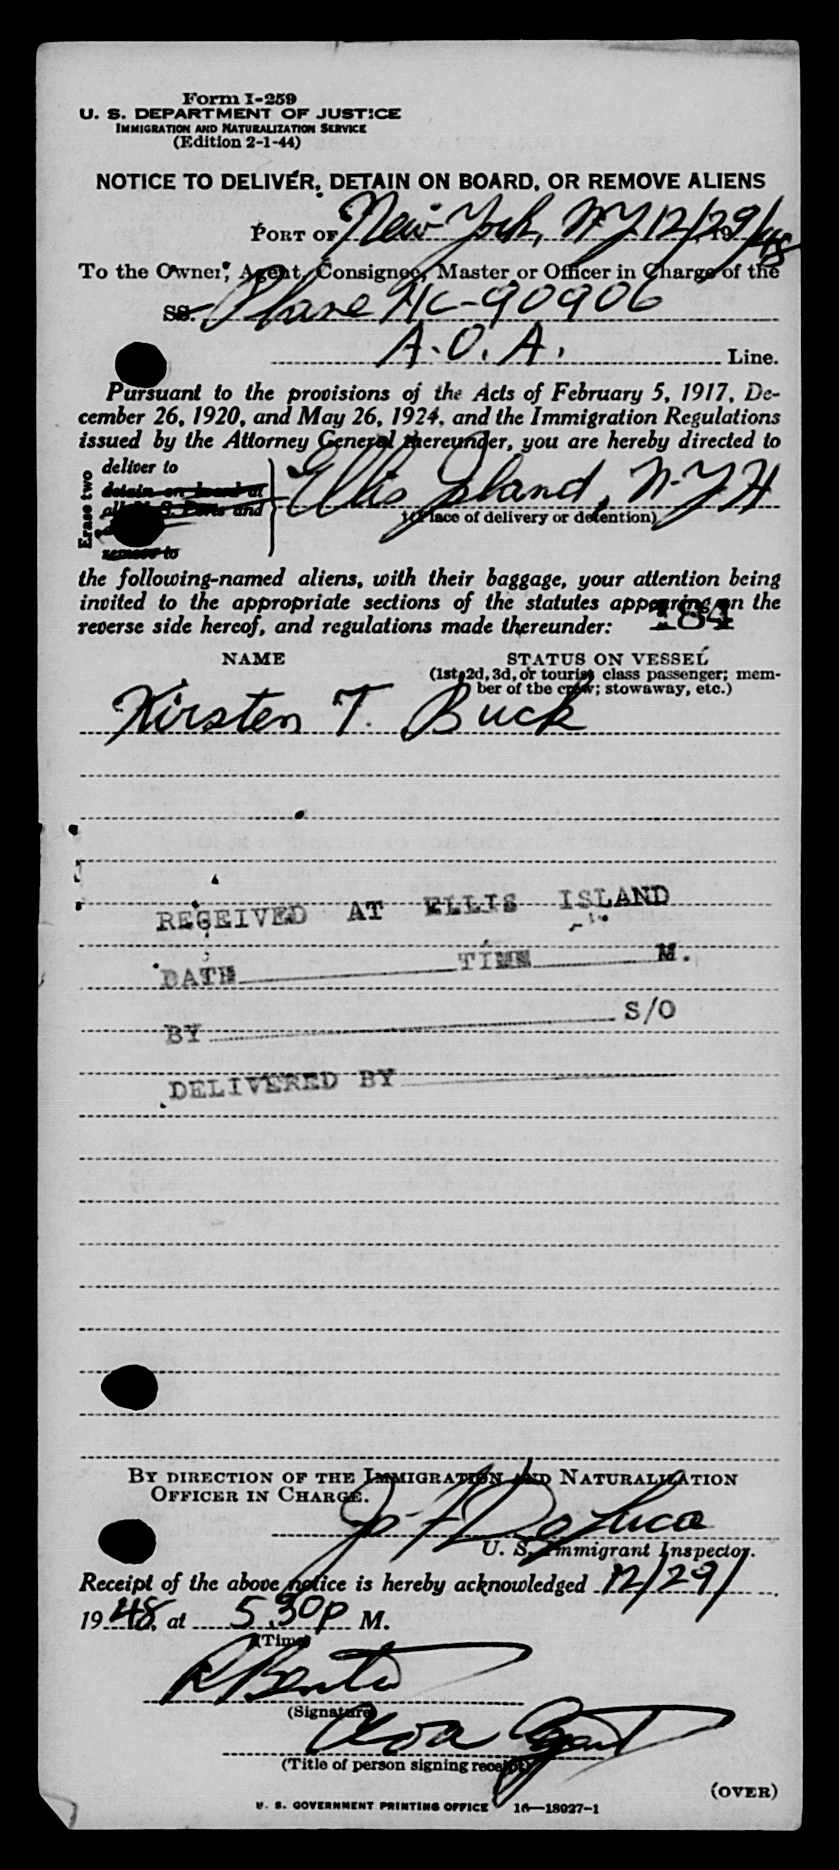 Form I-259
U. S. DEPARTMENT OF JUSTICE
IMMIGRATION AND NATURALIZATION SERVICE
(Edition 2-1-44)
NOTICE TO DELIVER, DETAIN ON BOARD, OR REMOVE ALIENS
PORT OF New York, NY 12/29/48
To the Owner, Agent, Consignee, Master or Officer in Charge of the
SS. Plane NC-90906
A.O.A. Line.
Pursuant to the provisions of the Acts of February 5, 1917, De-
cember 26, 1920, and May 26, 1924, and the Immigration Regulations
issued by the Attorney General thereunder, you are hereby directed to
Erase two
deliver to
detain on board at
all U. S. Ports and
remove to
Ellis Island, N.Y.H
(Place of delivery or detention)
the following-named aliens, with their baggage, your attention being
invited to the appropriate sections of the statutes appearing on the
reverse side hereof, and regulations made thereunder: 184
NAME STATUS ON VESSEL
(1st, 2d, 3d, or tourist class passenger; mem-
ber of the crew; stowaway, etc.)
Kirsten T. Buck
RECEIVED AT ELLIS ISLAND
DATE TIME M.
BY S/O
DELIVERED BY
BY DIRECTION OF THE IMMIGRATION AND NATURALIZATION
OFFICER IN CHARGE.
DeLuca
U. S. Immigrant Inspector.
Receipt of the above notice is hereby acknowledged 12/29/
1948, at 5.30 P M.
(Time)
(Signature)
AOA Agent
(Title of person signing receipt)
(OVER)
U. S. GOVERNMENT PRINTING OFFICE 16—18027-1